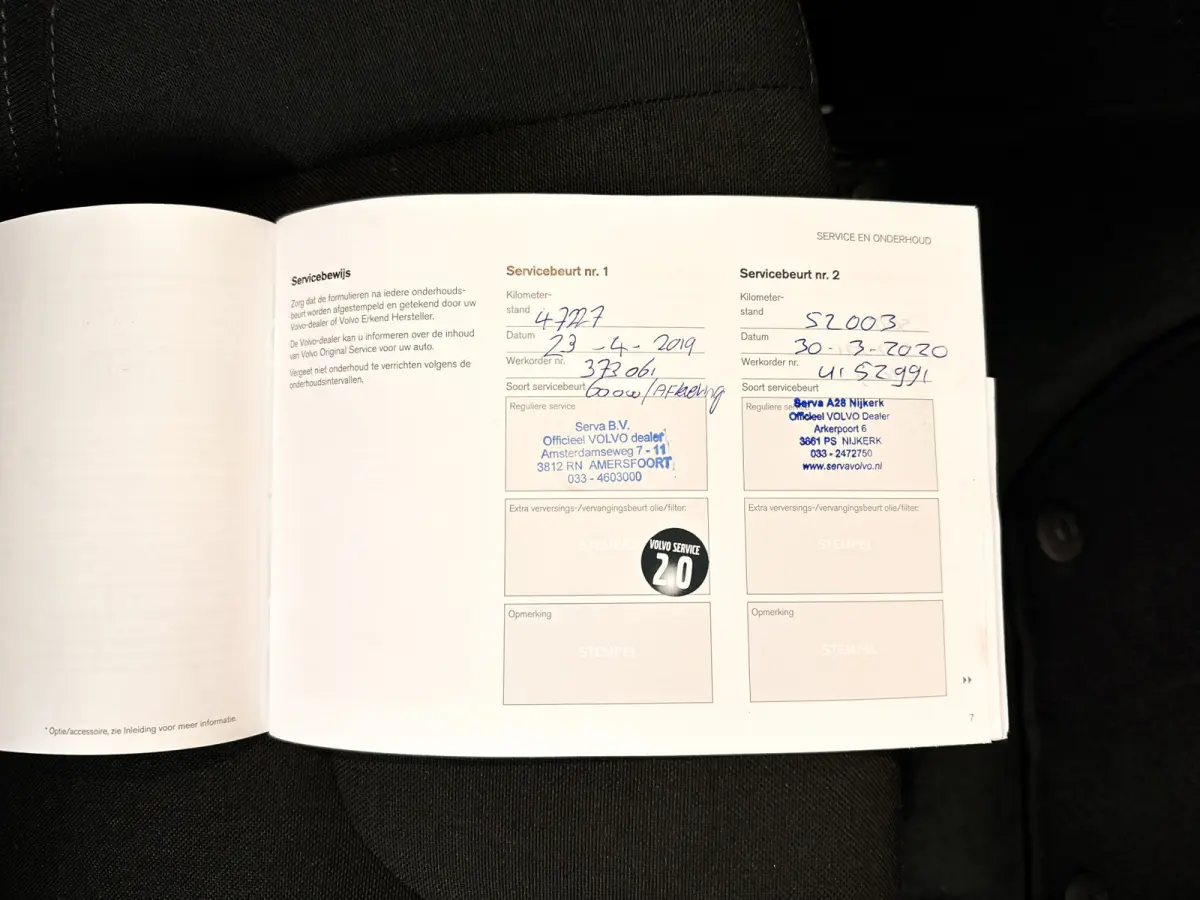 SERVICE EN ONDERHOUD
Servicebewijs
Zorg dat de formulieren na iedere onderhouds-
beurt worden afgestempeld en getekend door uw
Volvo-dealer of Volvo Erkend Hersteller.
De Volvo-dealer kan u informeren over de inhoud
van Volvo Original Service voor uw auto.
Vergeet niet onderhoud te verrichten volgens de
onderhoudsintervallen.
* Optie/accessoire, zie Inleiding voor meer informatie.
Servicebeurt nr. 1
Kilometer-
stand 47227
Datum 23-4-2019
Werkorder nr. 373061
Soort servicebeurt 60000/Aflevering
Reguliere service
Serva B.V.
Officieel VOLVO dealer
Amsterdamseweg 7 - 11
3812 RN AMERSFOORT
033 - 4603000
Extra verversings-/vervangingsbeurt olie/filter:
STEMPEL
VOLVO SERVICE
2.0
Opmerking
STEMPEL
Servicebeurt nr. 2
Kilometer-
stand 52003
Datum 30-3-2020
Werkorder nr. 52991
Soort servicebeurt
Reguliere service
Serva A28 Nijkerk
Officieel VOLVO Dealer
Arkerpoort 6
3861 PS NIJKERK
033 - 2472750
www.servavolvo.nl
Extra verversings-/vervangingsbeurt olie/filter:
STEMPEL
Opmerking
STEMPEL
7